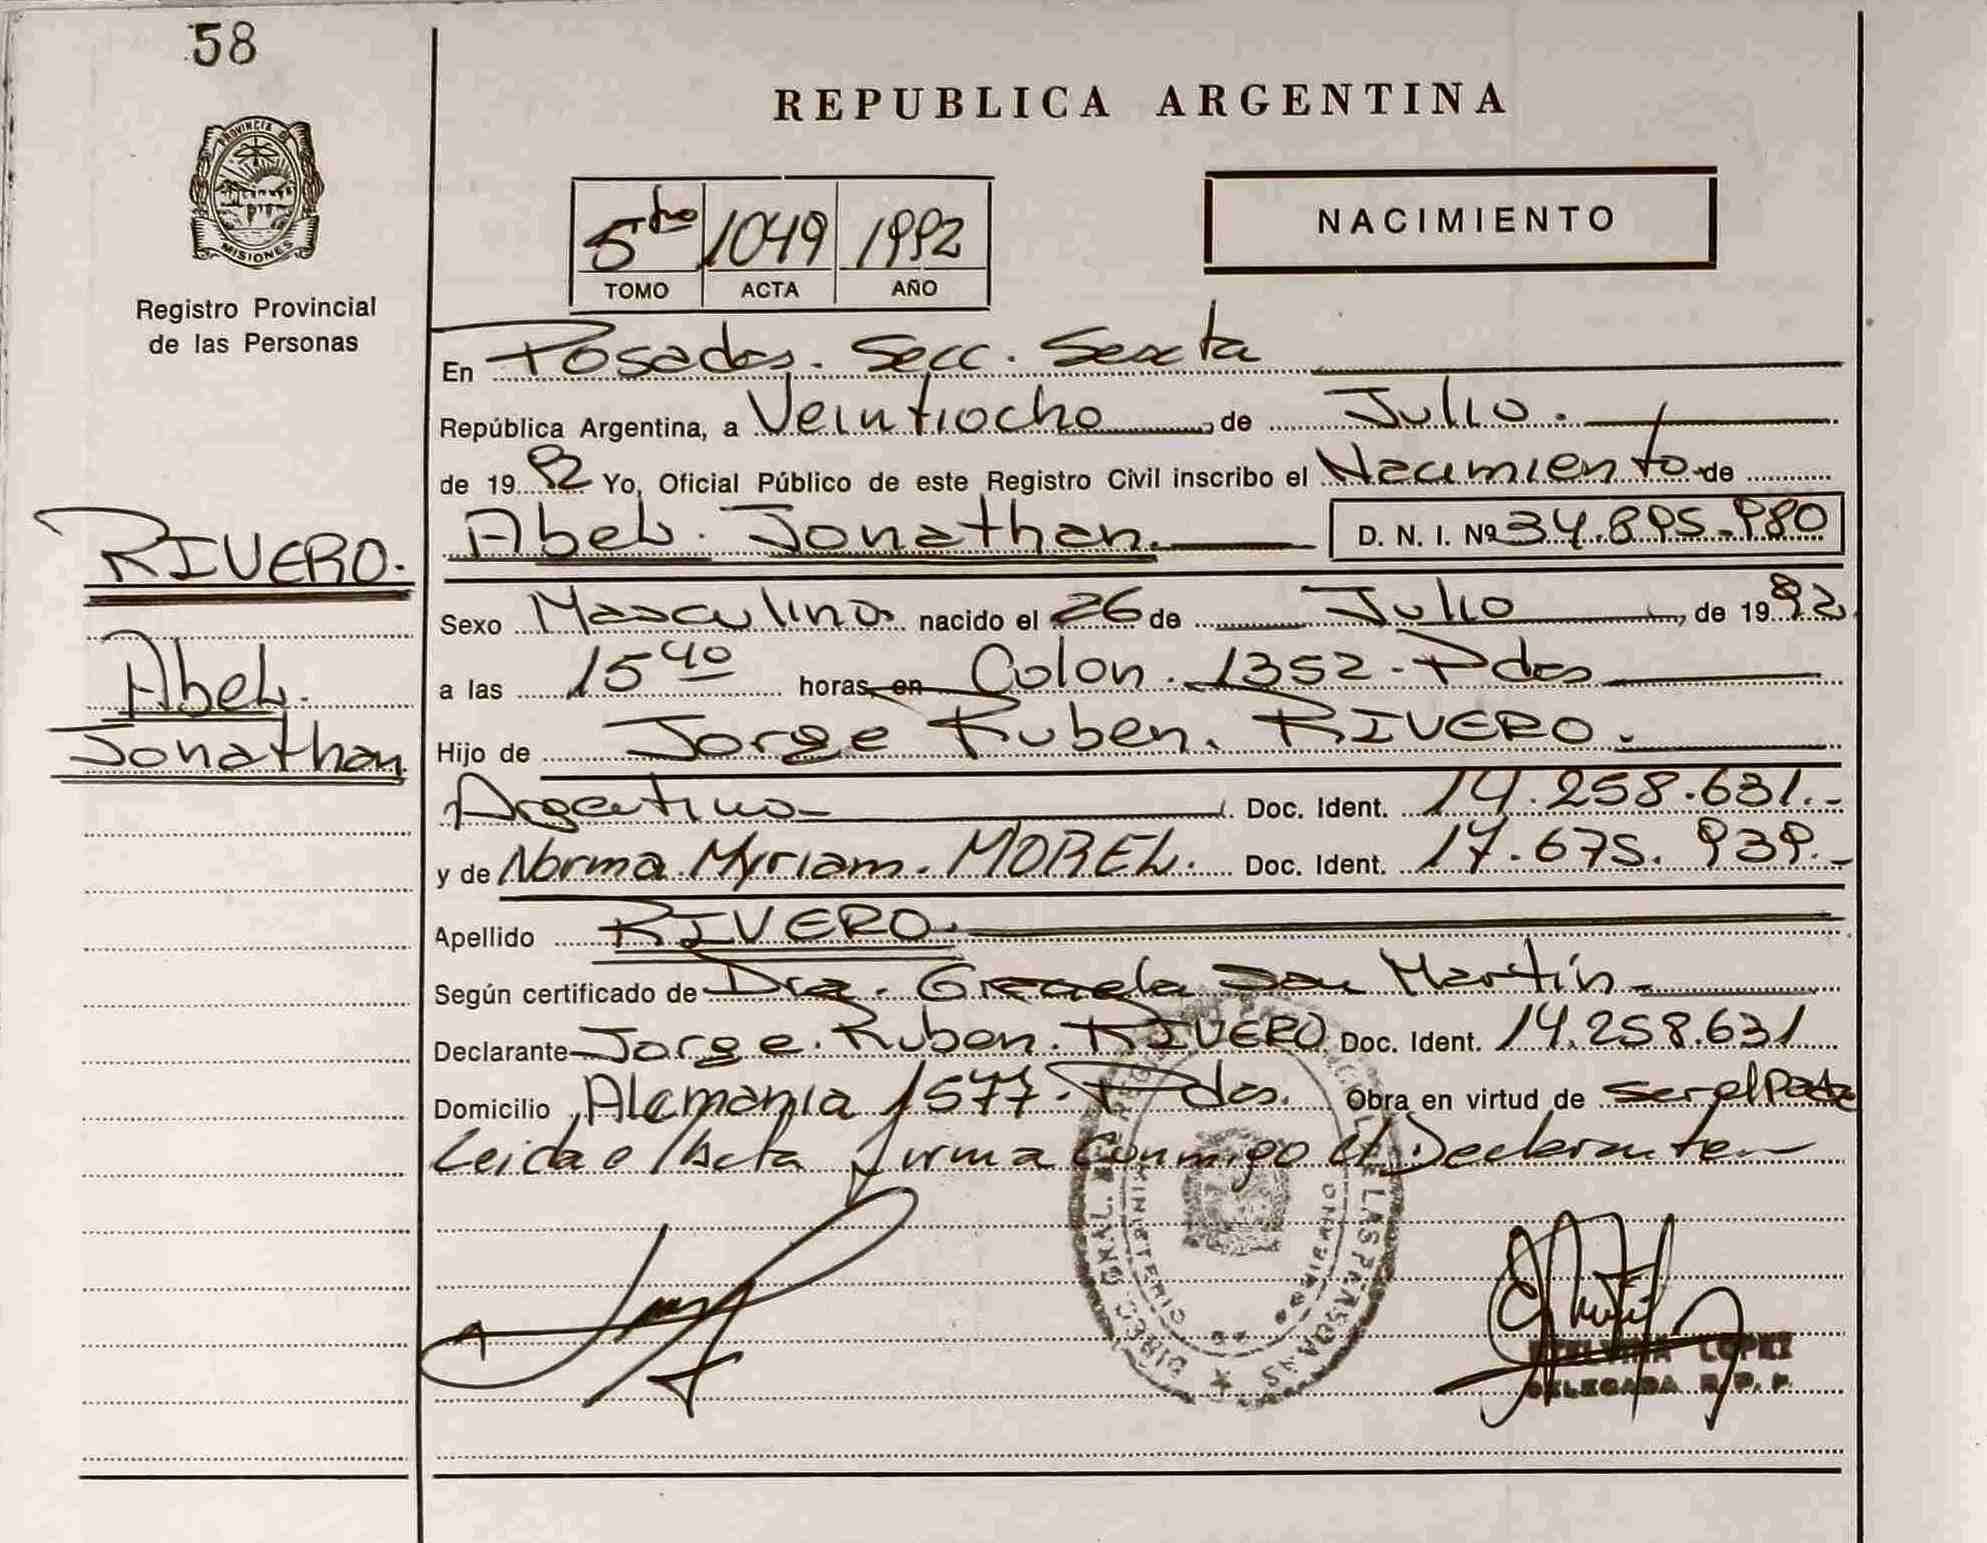 58
PROVINCIA DE
MISIONES
Registro Provincial
de las Personas
RIVERO.
Abel.
Jonathan
REPUBLICA ARGENTINA
5to 1049 1992
TOMO ACTA AÑO
NACIMIENTO
En Posadas. Secc. Sexta
República Argentina, a Veintiocho, de Julio.
de 1992 Yo, Oficial Público de este Registro Civil inscribo el Nacimiento de
Abel. Jonathan. D. N. I. Nº 34.895.980
Sexo Masculino nacido el 26 de Julio, de 1992.
a las 15 40 horas en Colon. 1352 - Pdas
Hijo de Jorge Ruben. RIVERO.
Argentino Doc. Ident. 14.258.631.-
y de Norma Myriam. MOREL. Doc. Ident. 17.675.939.-
Apellido RIVERO.
Según certificado de Dra. Graciela San Martín
Declarante Jorge. Ruben. RIVERO Doc. Ident. 14.258.631
Domicilio Alemania 1577 - Pdas. Obra en virtud de ser el Padre
Leida el Acta firma Conmigo el Declarante
MINISTERIO
LOPEZ
DELEGADA R. P. P.